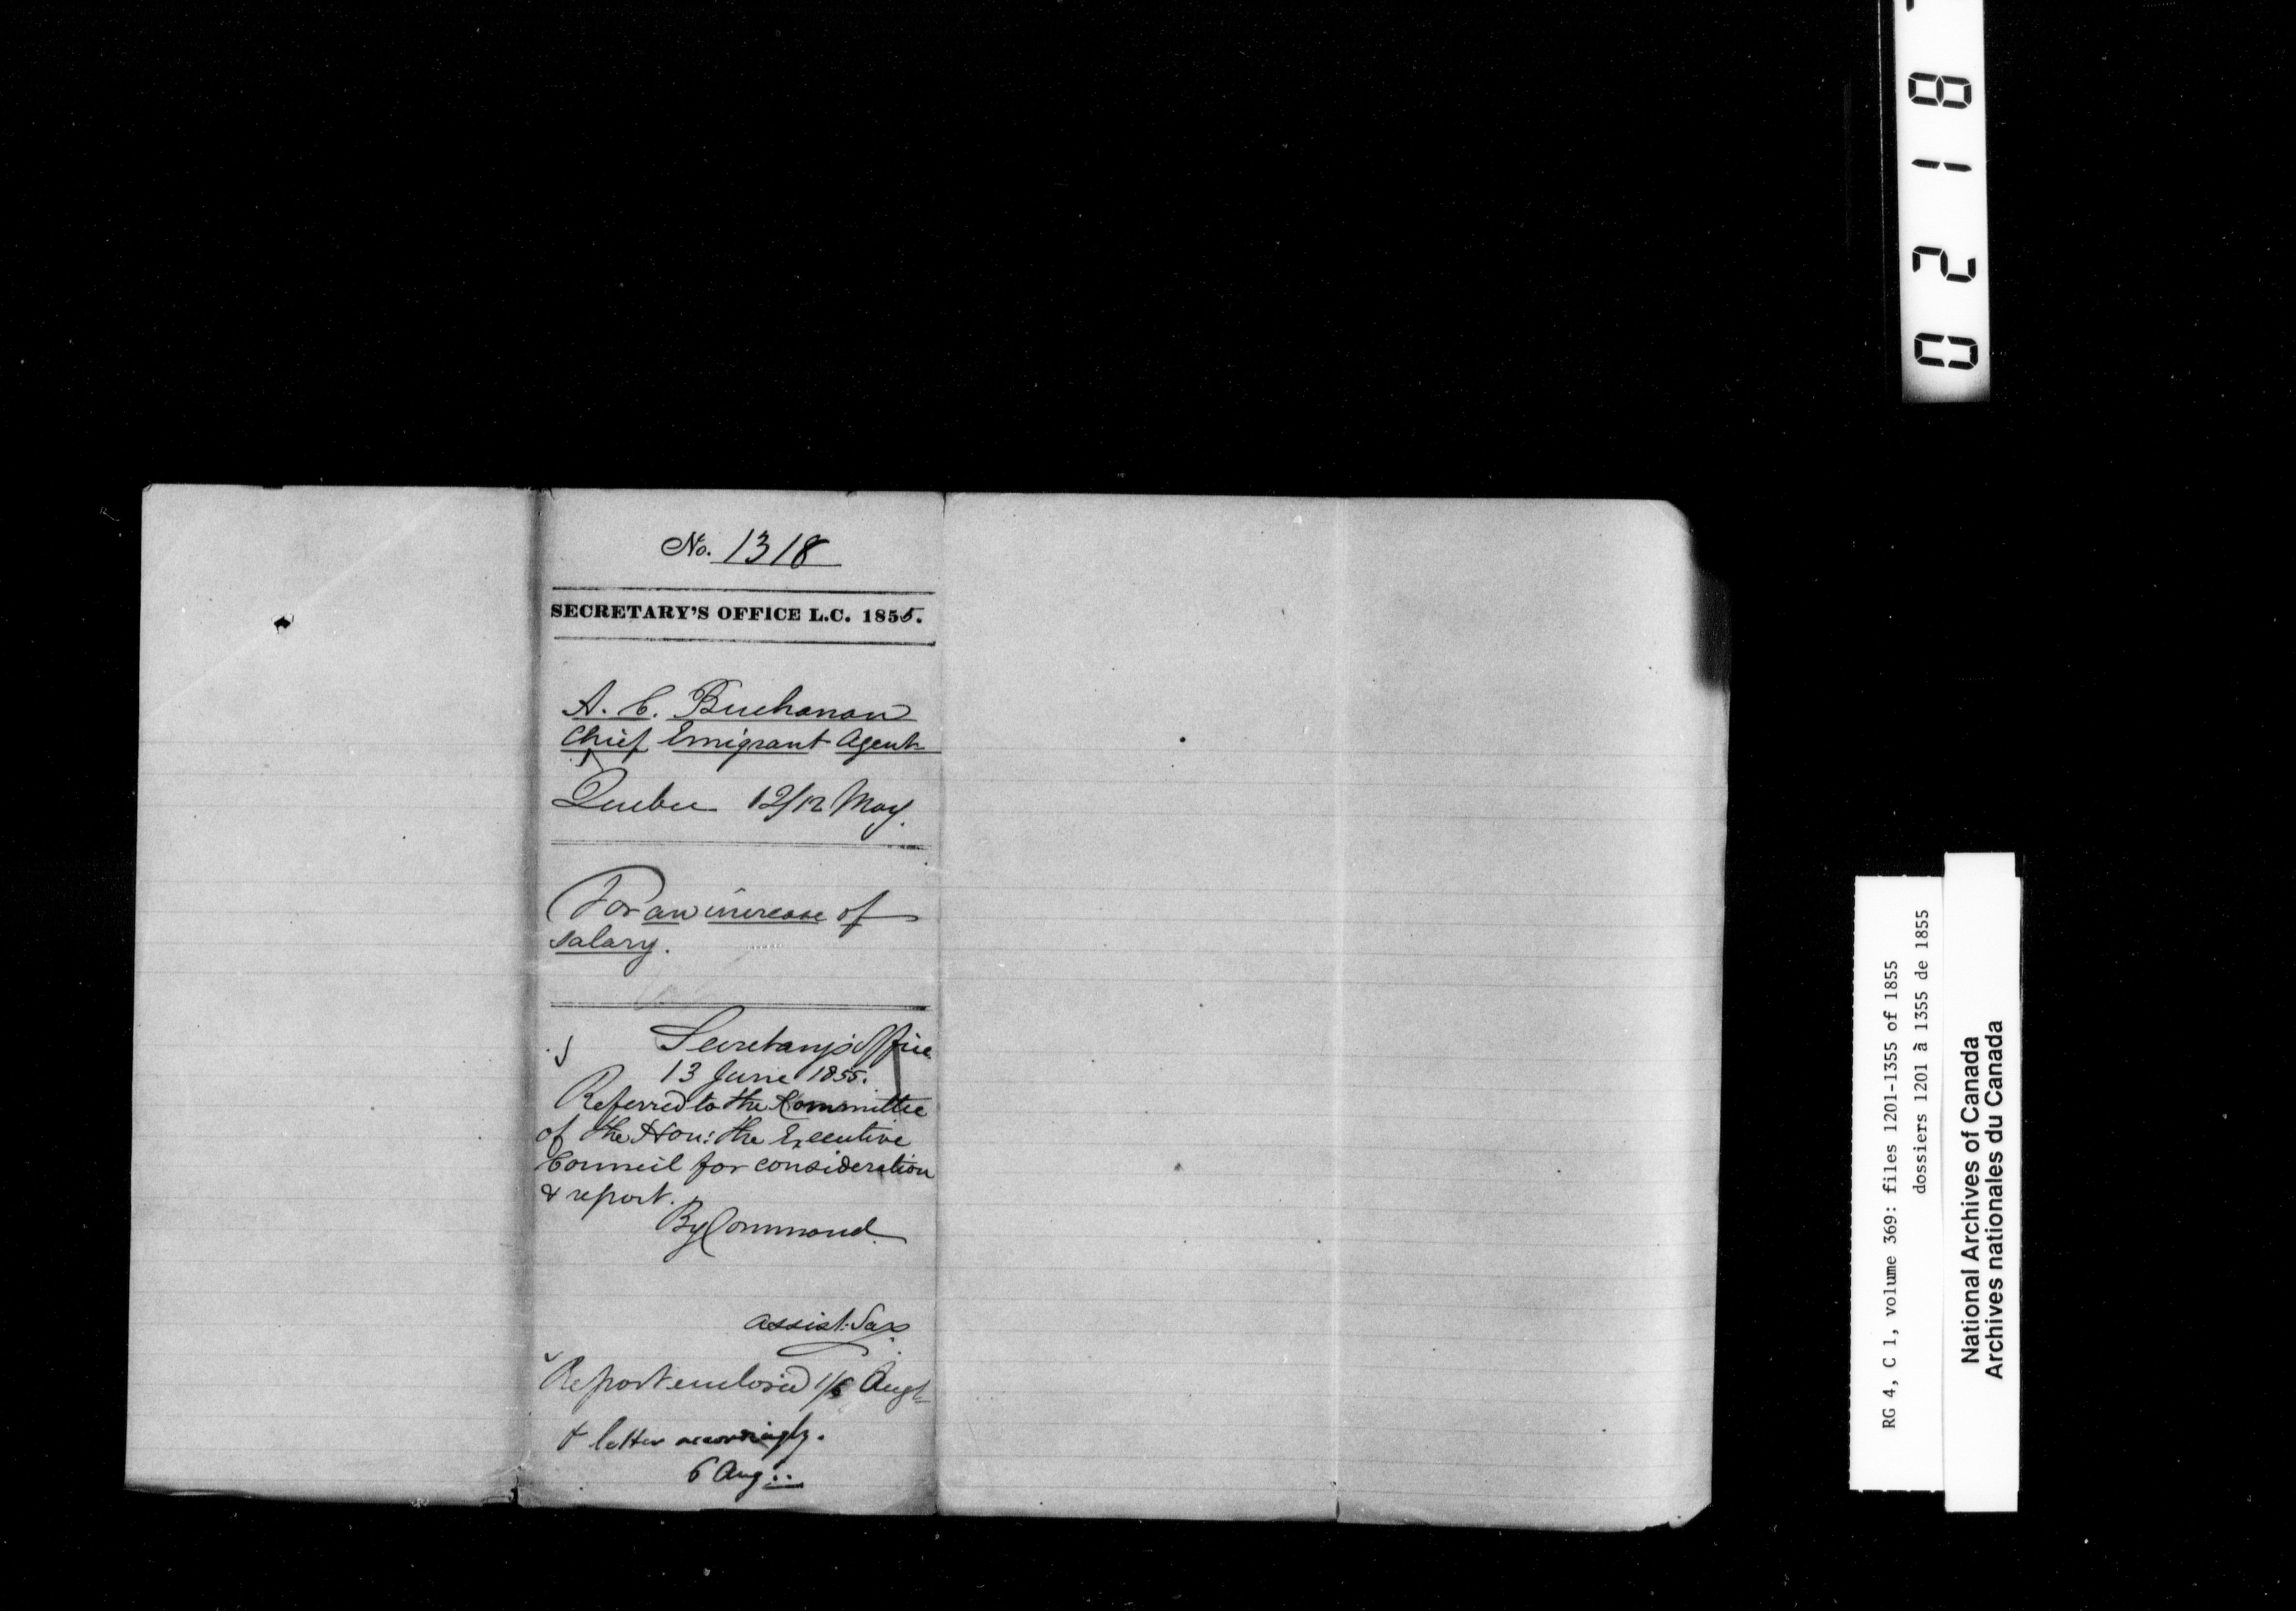 No. 1318
SECRETARY'S OFFICE L.C. 1855.
A. C. Buchanan
Chief Emigrant Agent
Quebec 12/12 May.
For an increase of
salary.
Secretary's Office
13 June 1855.
Referred to the Committee
of the Hon: the Executive
Council for consideration
& report.
By Command
Assist: Sec
Report enclosed 1/6 Augt
& letter accordingly.
6 Aug
0218
RG 4, C 1, volume 369: files 1201-1355 of 1855
dossiers 1201 à 1355 de 1855
National Archives of Canada
Archives nationales du Canada